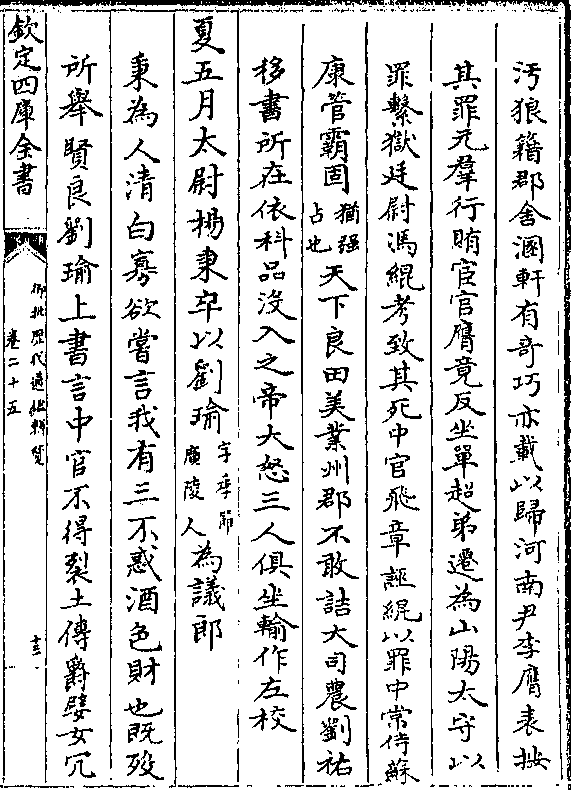 汚狼籍郡舍溷軒有竒巧亦載以歸河南尹李膺表按
其罪元羣行賄宦官膺竟反坐單超弟遷為山陽太守以
罪繫獄廷尉馮緄考致其死中官飛章誣緄以罪中常侍蘇
康管霸固猶强占也天下良田美業州郡不敢詰大司農劉祐
移書所在依科品沒入之帝大怒三人俱坐輸作左校
夏五月太尉楊秉卒以劉瑜字季節廣陵人為議郎
秉為人清白寡欲嘗言我有三不惑酒色財也既歿
所舉賢良劉瑜上書言中官不得裂土傳爵嬖女冗
欽定四庫全書
御批歴代通鑑輯覽
卷二十五
十三